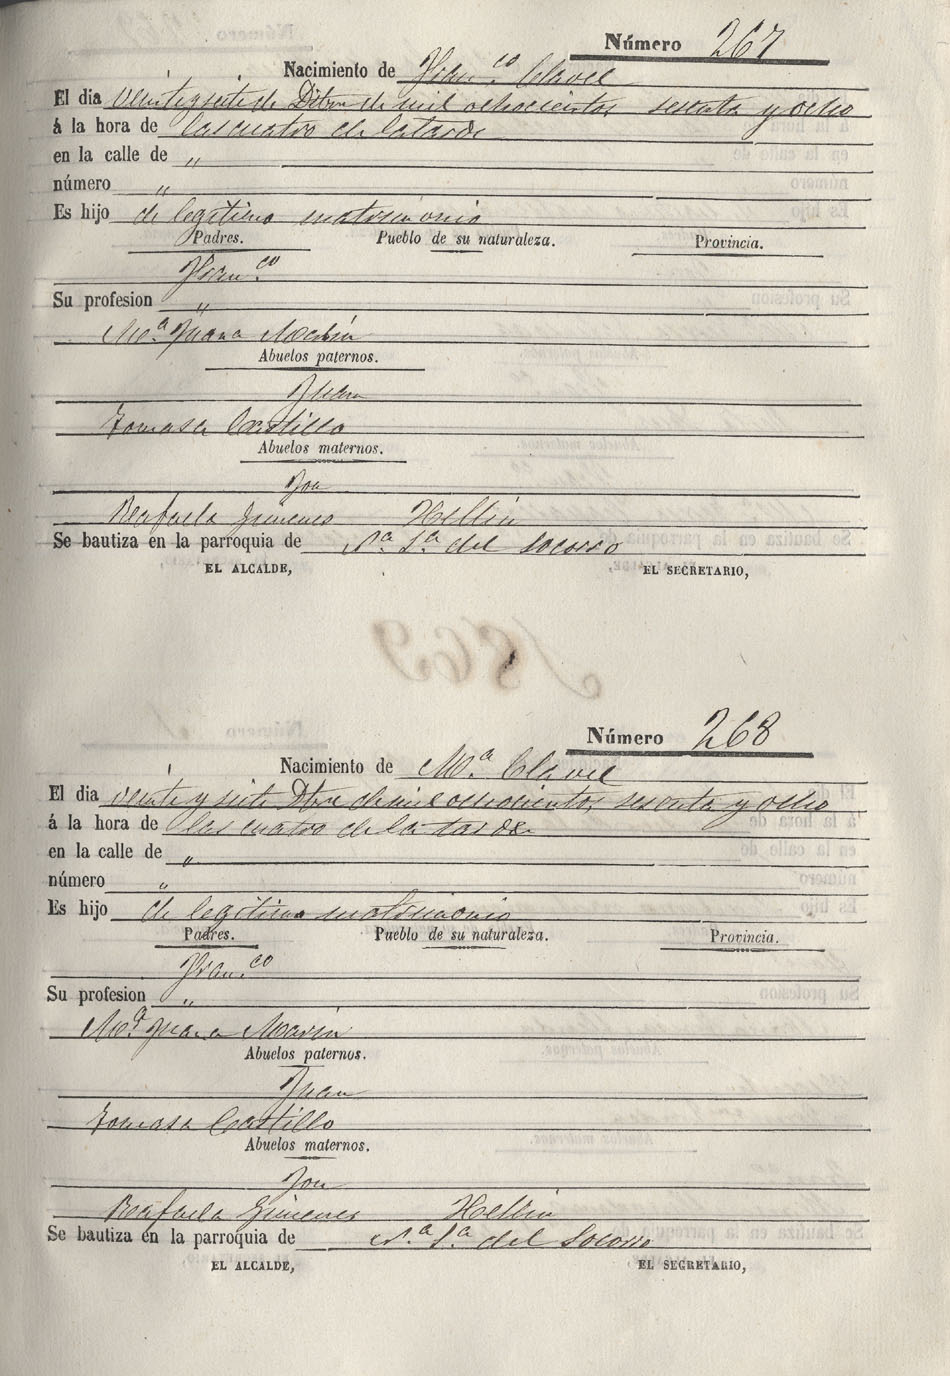 Número 267
Nacimiento de Fran.co Clavel
El dia veinte y siete de Dbre de mil ochocientos sesenta y ocho
á la hora de las cuatro de la tarde
en la calle de "
número "
Es hijo de legitimo matrimonio
Padres. Pueblo de su naturaleza. Provincia.
Fran.co
Su profesion "
Ma. Juana Marín
Abuelos paternos.
Juan
Tomasa Castillo
Abuelos maternos.
Rafaela Jimenes Hellin
Se bautiza en la parroquia de N.a S.a del Socorro
EL ALCALDE, EL SECRETARIO,
1869
Número 268
Nacimiento de M.a Clavel
El dia veinte y siete Dbre de mil ochocientos sesenta y ocho
á la hora de las cuatro de la tarde
en la calle de "
número "
Es hijo de legitimo matrimonio
Padres. Pueblo de su naturaleza. Provincia.
Fran.co
Su profesion "
Ma. Juana Marín
Abuelos paternos.
Juan
Tomasa Castillo
Abuelos maternos.
Rafaela Gimenes Hellin
Se bautiza en la parroquia de N.a S.a del Socorro
EL ALCALDE, EL SECRETARIO,